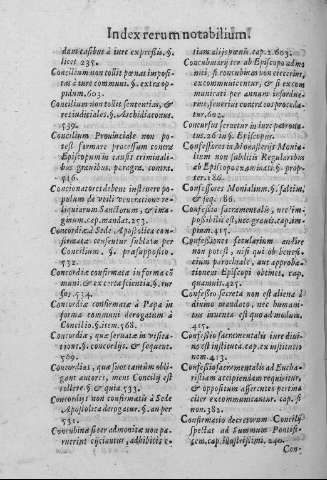 Index rerum notabilium.
dam casibus à iure expressis. §.
licet. 235.
Concilium non tollit pœnas imposi-
tas à iure communi. §. extra op-
pidum. 603.
Concilium non tollit sententiam, &
res iudiciales. §. Archidiaconus.
539.
Concilium Prouinciale non po-
test formare processum contra
Episcopum in causis criminali-
bus grauibus. paragra. contra.
516.
Concionatores debent instruere po-
pulum de vtili veneratione re-
liquiarum Sanctorum, & ima-
ginum. cap. mandat. 253.
Concordia à Sede Apostolica con-
firmata censentur sublata per
Concilium, §. præsupposito.
532.
Concordia confirmata in forma cõ
muni & ex certa scientia. §. rur
sus. 534.
Concordia confirmata à Papa in
forma communi derogatum à
Concilio. §. item. 568.
Concordia, quæ seruata in visita-
tione. §. concordijs. & sequent.
569.
Concordias, quæ iuuetam ũ obli-
gant autores, mens Concilij est
tollere. § & quia. 533.
Concordijs non confirmatis à Sede
Apostolica derogatur. §. an per
531.
Concubina si ter admonita non pa-
ruerint eijciantur, adhibitis e-
tiam alijs pœnis. cap. 2. 603.
Concubinarij ter ab Episcopo admo
niti, si concubinas non eiecerint,
excommunicentur, & si excom
municati per annum insordue-
rint, seuerius contra eos procula-
tur. 602.
Concursus seruetur in iure patrona-
tus. 26 in §. Episcopus.
Confessores in Monasterijs Monia-
lium non sublicis Regularibus
ab Episcopo examinati. §. prop-
ter. 186.
Confessores Monialium. §. saltim.
& seq. 186.
Confessio sacramentalis, nec im-
possibilis est, nec grauis. cap. am-
pium. 415.
Confessiones secularium audire
non potest, nisi qui ob benefi-
cium parochiale, aut approba-
tionem Episcopi obtinet. cap.
quamuis. 425.
Confessio secreta non est aliena à
diuino mandato, nec humani-
tus inuenta est quo ad modum.
415.
Confessio sacramentalis iure diui-
no est instituta. cap. ex institutio
nem. 413.
Confessio sacramentalis ad Eucha-
ristiam accipiendam requiritur,
& oppositum asserentes pertina
citer excommunicantur. cap. si
non. 382.
Confirmatio decretorum Concilij
spectat ad Summum Pontifi-
cem. cap. illustrissimi. 240.
Con-